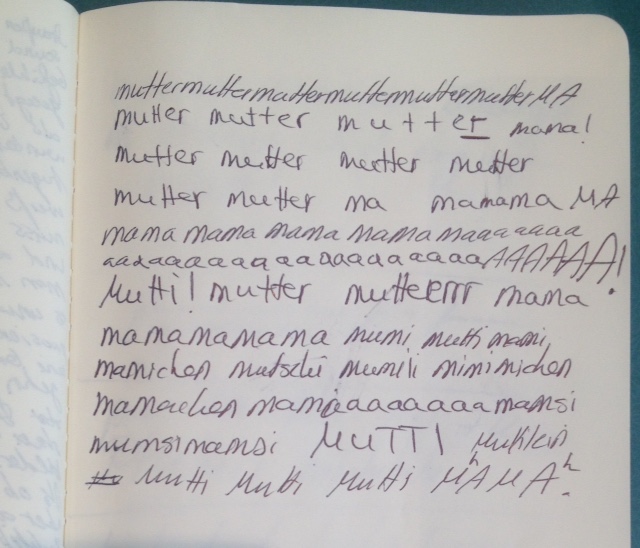 muttermuttermuttermuttermuttermutter MA
mutter mutter m u t t er mama!
mutter mutter mutter mutter
mutter mutter ma mamama MA
mama mama mama mamamaaaaaaa
aaaaaaaaaaaaaaaaaaaaAAAAAA!
Mutti! mutter mutterrrr mama
mamamamama mumi mutti mami,
mamichen mutschi mumili mimimichen
mamachen mamaaaaaaaaa mamsi
mumsimamsi MUTTI Muttilein
Mutti Mutti Mutti MhAMAh.